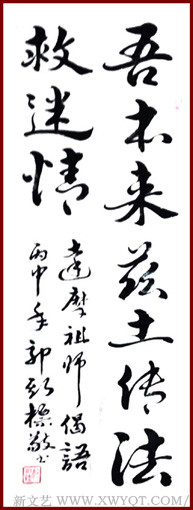 吾本来兹土传法
救迷情
達摩祖师偈語
丙申年郭新标敬书
新文艺 WWW.XWYQT.COM